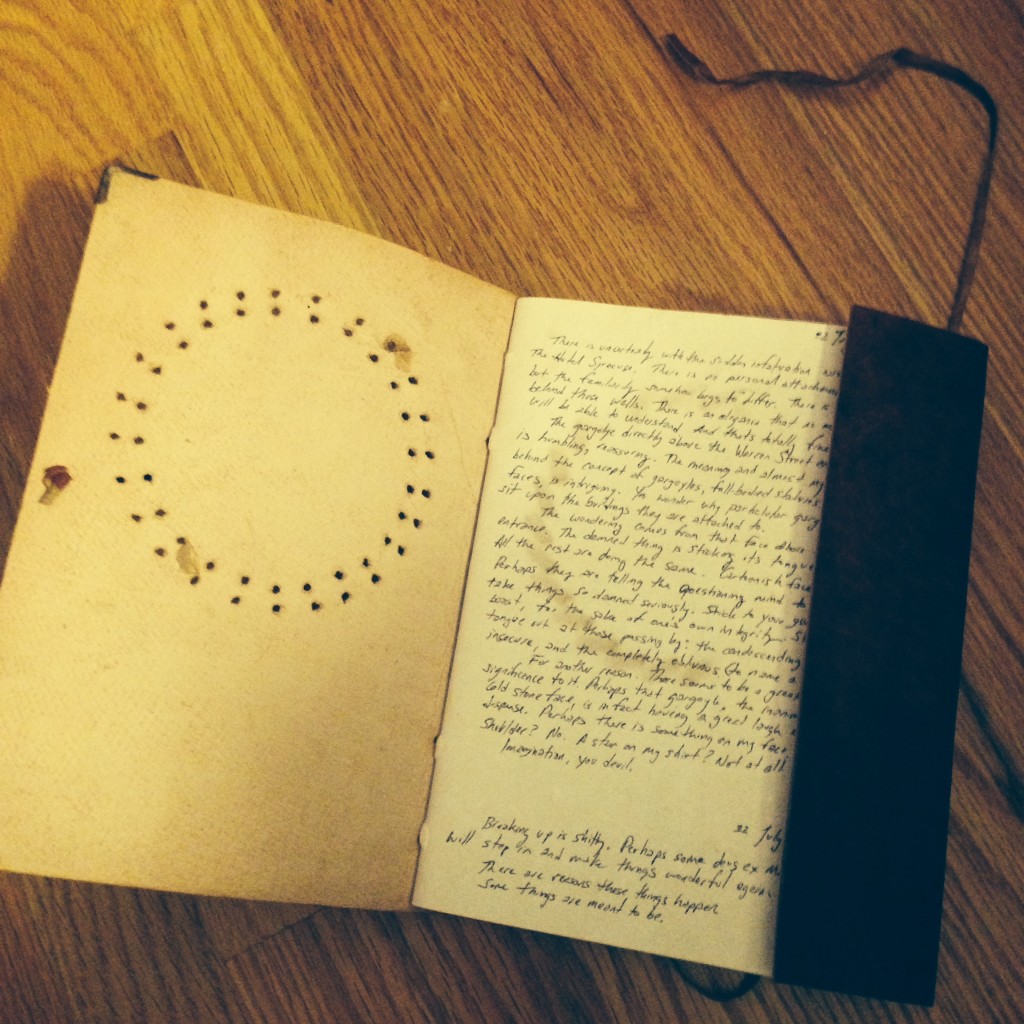 There is uncertainty with this sudden infatuation
The Hotel Syracuse. There is no personal attachment
but the familiarity somehow begs to differ. There is
behind those walls. There is an elegance that is
will be able to understand. And that's totally fine
The gargoyle directly above the Warren Street
is humbling, reassuring. The meaning and almost
behind the concept of gargoyles, full-bodied statues
faces, is intriguing. Ya wonder why particular
sit upon the buildings they are attached to.
The wondering comes from that face above
entrance. The damned thing is sticking its tongue
All the rest are doing the same. Cartoonish face
Perhaps they are telling the questioning mind to
take things so damned seriously. Stick to your
for the sake of one's own integrity.
tongue out at those passing by: the condescending
insecure, and the completely oblivious to name a
For another reason. There seems to be a great
significance to it. Perhaps that gargoyle, the
cold stone face, is in fact having a great laugh
disguise. Perhaps there is something on my face,
shoulder? No. A stain on my shirt? Not at all
Imagination, you devil.
22 July
Breaking up is shitty. Perhaps some deus ex
will step in and make things wonderful again.
There are reasons these things happen
Some things are meant to be.